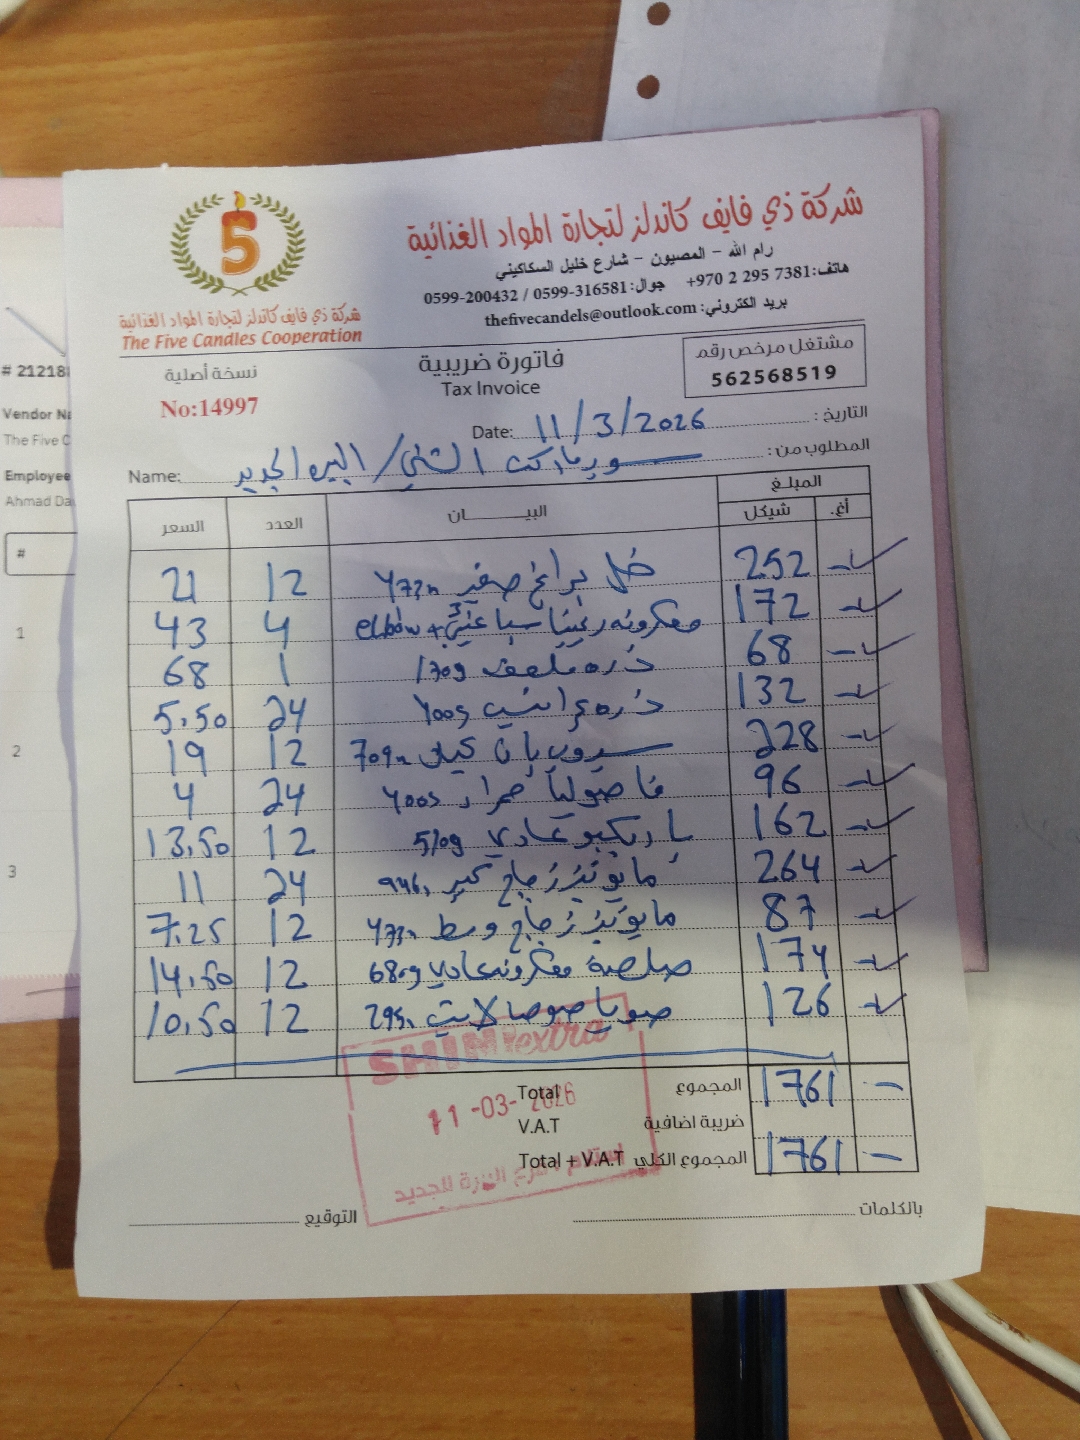 شركة ذي فايف كاندلز لتجارة المواد الغذائية
رام الله - المصيون - شارع خليل السكاكيني
هاتف: +970 2 295 7381 جوال: 0599-316581 / 0599-200432
بريد الكتروني: thefivecandels@outlook.com
5
شركة ذي فايف كاندلز لتجارة المواد الغذائية
The Five Candles Cooperation
نسخة أصلية
No:14997
فاتورة ضريبية
Tax Invoice
مشتغل مرخص رقم
562568519
التاريخ: 11/3/2026 Date:
المطلوب من: سوبر ماركت الشني / البيره الجديد Name:
المبلغ
أغ. شيكل البيـــان العدد السعر
- 252 خل براغ صغير 473m 12 21
- 172 معكرونه ريجينا سباغيتي 3 + elbow 4 43
- 68 ذره 170g 1 68
- 132 ذره 400g 24 5.50
- 228 سيروب بان كيك 709m 12 19
- 96 فاصوليا حمراء 400g 24 4
- 162 باربكيو عادي 510g 12 13.50
- 264 مايونيز زجاج كبير 946 24 11
- 87 مايونيز زجاج وسط 473m 12 7.25
- 174 صلصة معكرونه عادي 680g 12 14.50
- 126 صويا صوص لايت 295 12 10.50
المجموع Total 1761 -
ضريبة اضافية V.A.T
المجموع الكلي Total + V.A.T 1761 -
SHINI extra
11-03-2026
استلام فرع البيرة الجديد
بالكلمات
التوقيع
# 21218
Vendor Na
The Five C
Employee
Ahmad Da
#
1
2
3